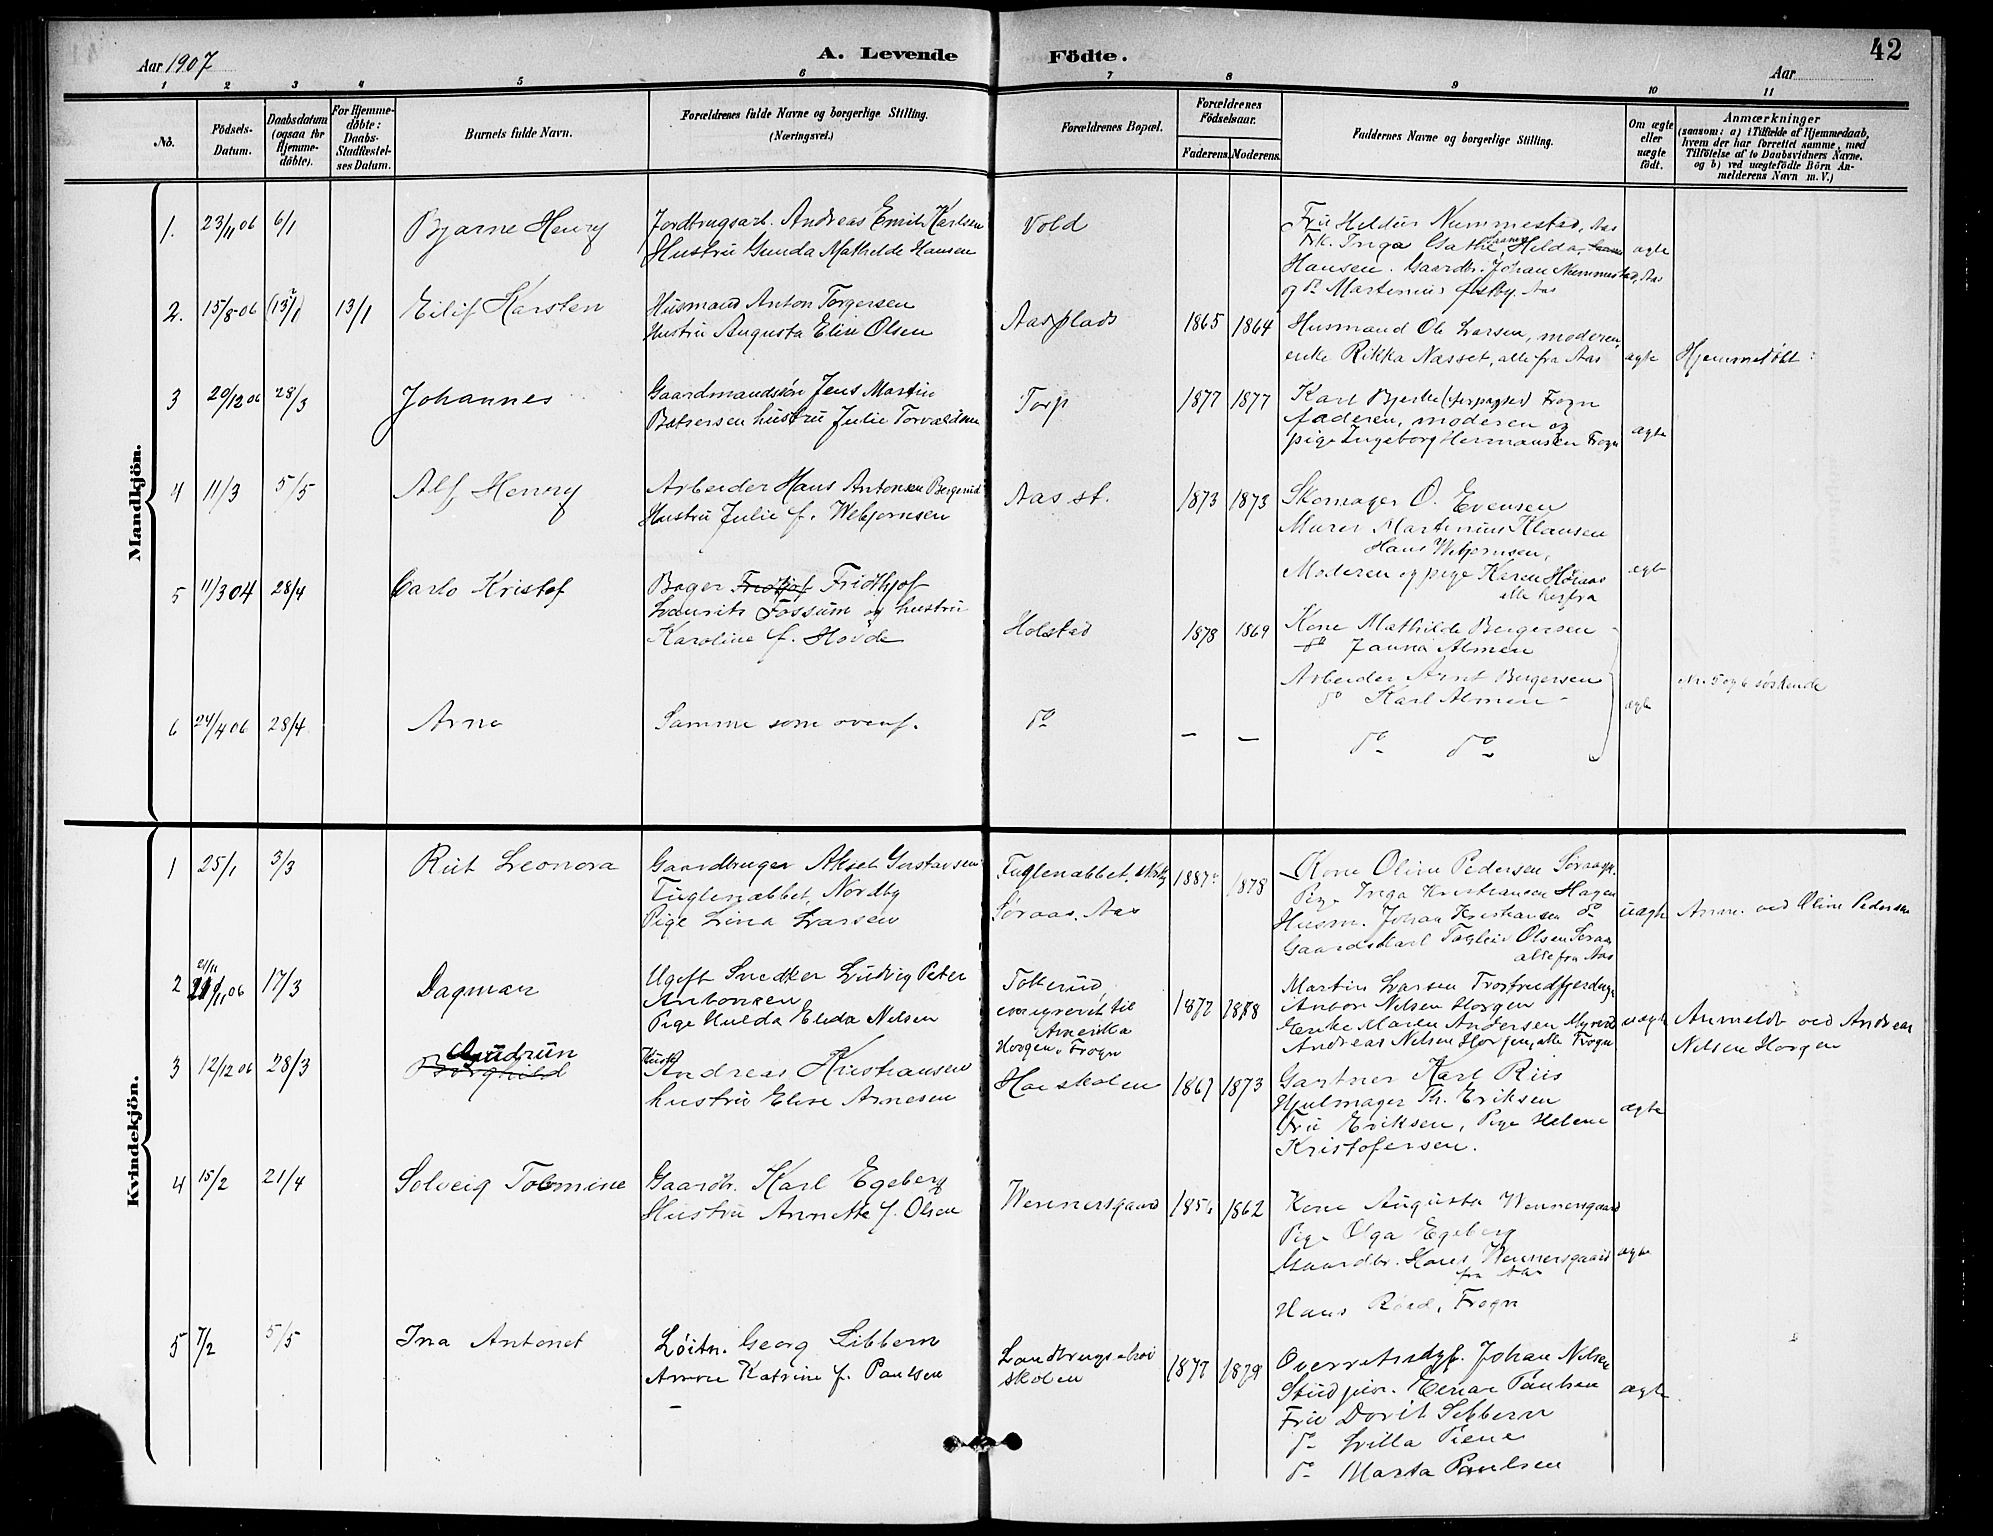 Aar 1907
A. Levende Födte.
42
Aar
1 2 3 4 5 6 7 8 9 10 11
No.
Födsels-Datum.
Daabsdatum (ogsaa for Hjemme-döbte).
For Hjemme-döbte: Daabs-Stadfæstel-ses Datum.
Barnets fulde Navn.
Forældrenes fulde Navne og borgerlige Stilling. (Næringsvei.)
Forældrenes Bopæl.
Forældrenes Födselsaar.
Faderens. Moderens.
Faddernes Navne og borgerlige Stilling.
Om ægte eller uægte födt.
Anmærkninger
(saasom: a) i Tilfælde af Hjemmedaab,
hvem der har forrettet samme, med
Tilföielse af to Daabsvidners Navne.
og b) ved uægtefödte Börn An-
melderens Navn m. V.)
Mandkjön.
1. 23/11 06 6/1 Bjarne Henry
Jordbrugsarb. Andreas Emil Karlsen
Hustru Gunda Mathilde Hansen
Vold
Fru Heldur Nummestad, Aas
Frk. Inga Hilda
Hansen. Gaardbr. Johan Nummestad, Aas
og do Martinius Aas
ægte
2. 15/8-06 (13/1) 13/1 Eilif Karsten
Husmand Anton Torgersen
Hustru Augusta Elise Olsen
Aasplads 1865 1864
Husmand Ole Larsen, moderen,
enke Rikka Nasset, alle fra Aas
ægte Hjemmedøbt
3 20/12 06 28/3 Johannes
Gaardmandssøn Jens Martin
hustru Julie Torvaldsen
Torp 1877 1877
Karl Bjerke Frogn
faderen, moderen og
pige Ingeborg Hermansen Frogn
ægte
4 11/3 5/5 Alf Henry
Arbeider Hans Antonsen Bergerud
Hustru Julie f. Webjørnsen
Aas st. 1873 1873
Skomager O. Evensen
Murer Martinius Klausen
Hans Webjørnsen,
Moderen og pige Karen
alle herfra
ægte
5 11/3 04 28/4 Carlo Kristof
Bager Fridthjof Fridthjof
Laurits Fossum og hustru
Karoline f. Hovde
Holstad 1878 1869
Kone Mathilde Bergersen
do Janna Almen
Arbeider Arnt Bergersen
do Karl Almen
Nr. 5 og 6 søskende
6 24/4 06 28/4 Arne
Samme som ovenf.
do – –
do do
ægte
Kvindekjön.
1 25/1 3/3 Rut Leonora
Gaardbruger Aksel Gustavsen
Fuglenæbbet, Nordby
Pige Lina Larsen
Fuglenæbbet, Nordby
Søraas, Aas
1887 1878
Kone Oline Pedersen
Pige Inga Kristiansen Hagen
Husm. Johan Kristiansen do
Gaardskarl Olsen Søraas
alle fra Aas
uægte Anm. ved Oline Pedersen
2 21/11 06 17/3 Dagmar
Ugift Snedker Ludvig Peter
Antonsen
Pige Hulda Elida Nilsen
emigreret til
Amerika
Horgen, Frogn
1877 1888
Martin Larsen
Anton Nilsen Horgen
Enke Maren Andersen
Andreas Nilsen Horgen, alle Frogn
uægte Anmeldt ved Andreas
Nilsen Horgen
3 12/12 06 28/3 Gudrun
Borghild
Andreas Kristiansen
hustru Elise Arnesen
Høiskolen 1867 1873
Gartner Karl Riis
Hjulmager Th. Eriksen
Fru Eriksen, Pige Helene
Kristofersen.
ægte
4 15/2 21/4 Solveig
Gaardbr. Karl Egeberg
Hustru Annette f. Olsen
Wennersgaard 1862
Kone Augusta Wennersgaard
Pige Olga Egeberg
Gaardbr. Hans Wennersgaard
fra Aas
Hans Frogn
ægte
5 7/2 5/5 Ina Antonet
Løitn. Georg Sibbern
Katrine f. Paulsen
Landbrugshøi
skolen
1877 1879
Overretssagf. Johan Nilsen
Stud. jur. Einar Paulsen
Fru Dorit Sibbern
do Piene
do Marta Paulsen
ægte